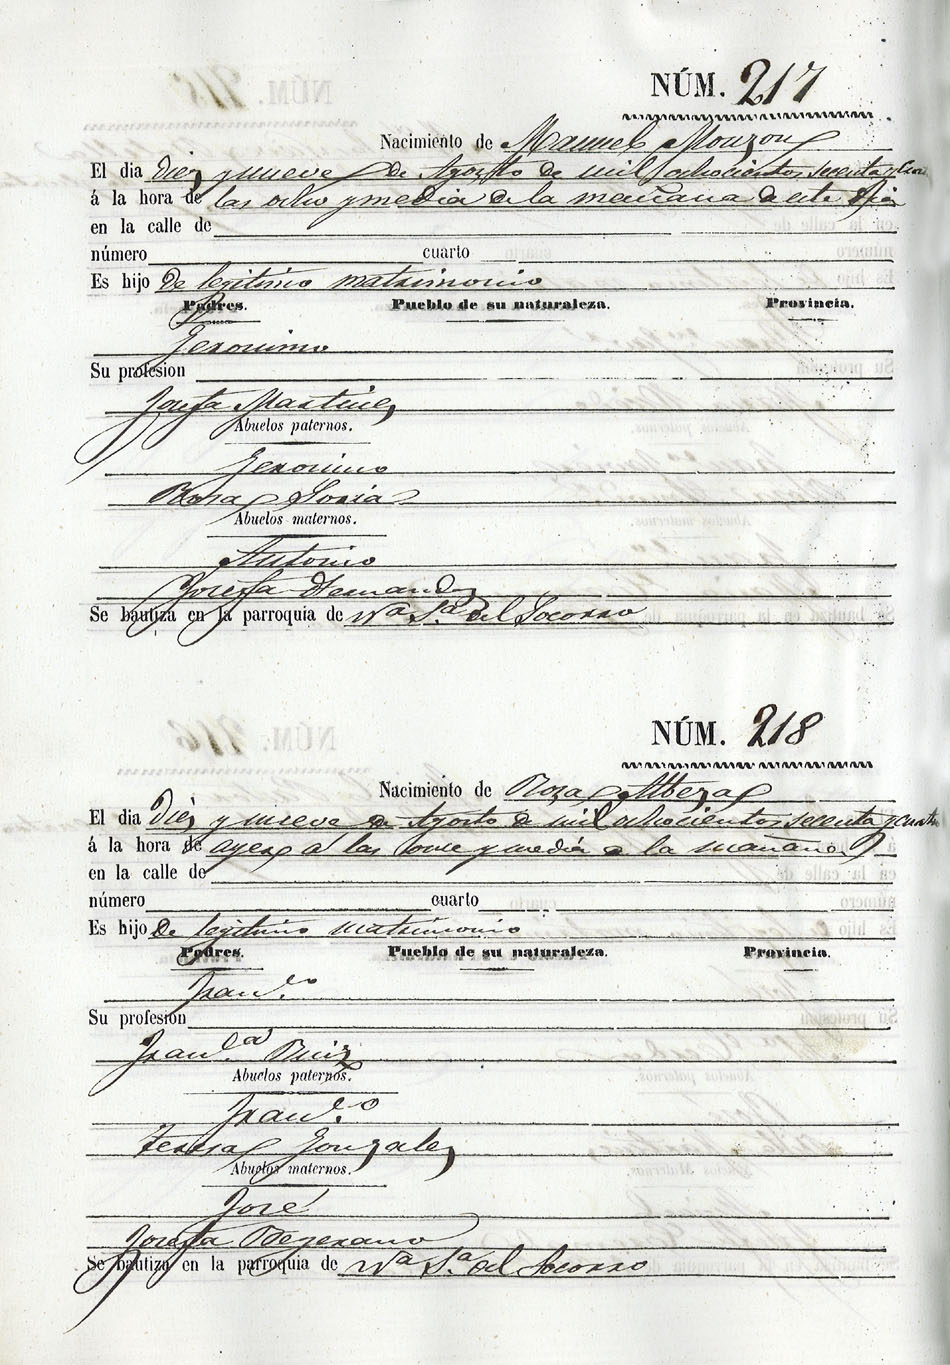 NÚM. 217
Nacimiento de Manuel Monzon
El dia diez y nueve de Agosto de mil ochocientos sesenta y cuatro
á la hora de las ocho y media de la mañana de este dia
en la calle de
número cuarto
Es hijo de legitimo matrimonio
Padres. Pueblo de su naturaleza. Provincia.
Jeronimo
Su profesion
Josefa Martinez
Abuelos paternos.
Jeronimo
Rosa Soria
Abuelos maternos.
Antonio
Josefa Hernandz
Se bautiza en la parroquia de Na Sa del Socorro
NÚM. 218
Nacimiento de Rosa Albeza
El dia diez y nueve de Agosto de mil ochocientos sesenta y cuatro
á la hora de ayer a las once y media de la mañana
en la calle de
número cuarto
Es hijo de legitimo matrimonio
Padres. Pueblo de su naturaleza. Provincia.
Franco
Su profesion
Franca Ruiz
Abuelos paternos.
Franco
Teresa Gonzalez
Abuelos maternos.
José
Josefa Bejerano
Se bautiza en la parroquia de Na Sa del Socorro